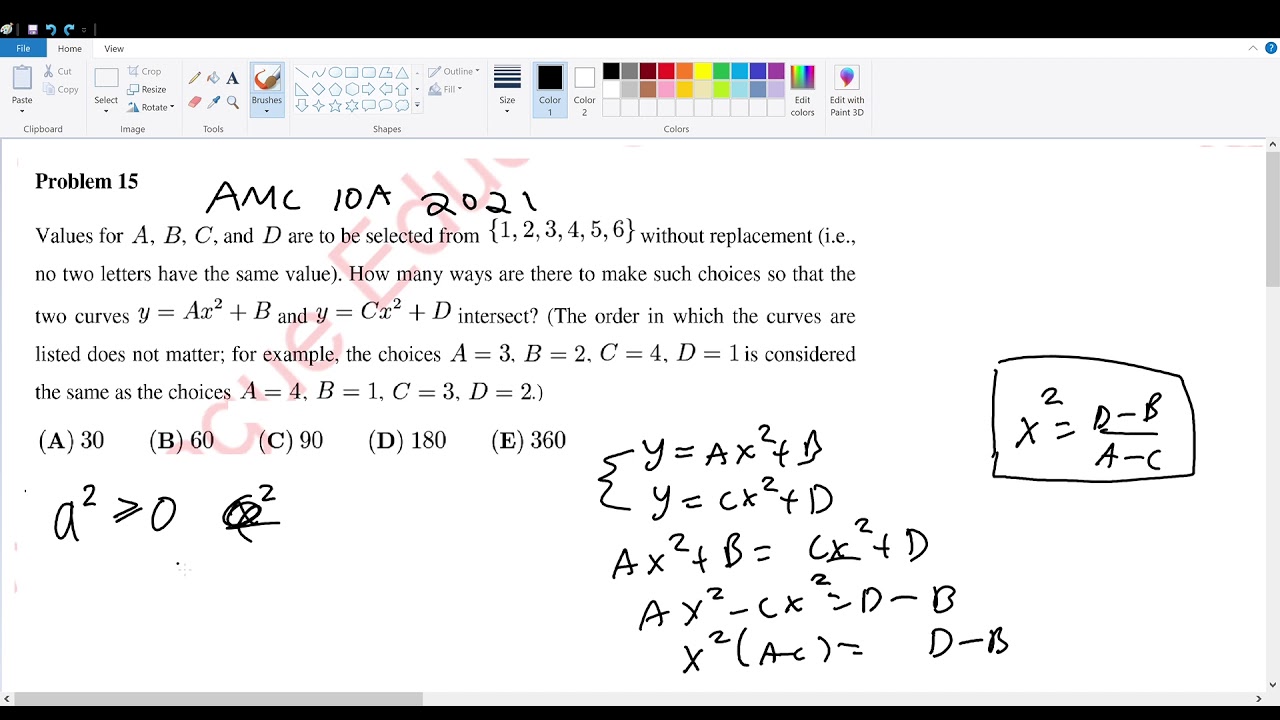 File Home View
Paste Cut Copy Select Crop Resize Rotate Brushes Outline Fill Size Color 1 Color 2 Edit colors Edit with Paint 3D
Clipboard Image Tools Shapes Colors
Problem 15
AMC 10A 2021
Values for A, B, C, and D are to be selected from {1, 2, 3, 4, 5, 6} without replacement (i.e.,
no two letters have the same value). How many ways are there to make such choices so that the
two curves y = Ax² + B and y = Cx² + D intersect? (The order in which the curves are
listed does not matter; for example, the choices A = 3, B = 2, C = 4, D = 1 is considered
the same as the choices A = 4, B = 1, C = 3, D = 2.)
(A) 30 (B) 60 (C) 90 (D) 180 (E) 360
x² = D-B / A-C
y = Ax² + B
y = Cx² + D
a² ⩾ 0
Ax² + B = Cx² + D
Ax² - Cx² = D - B
x² (A-C) = D - B